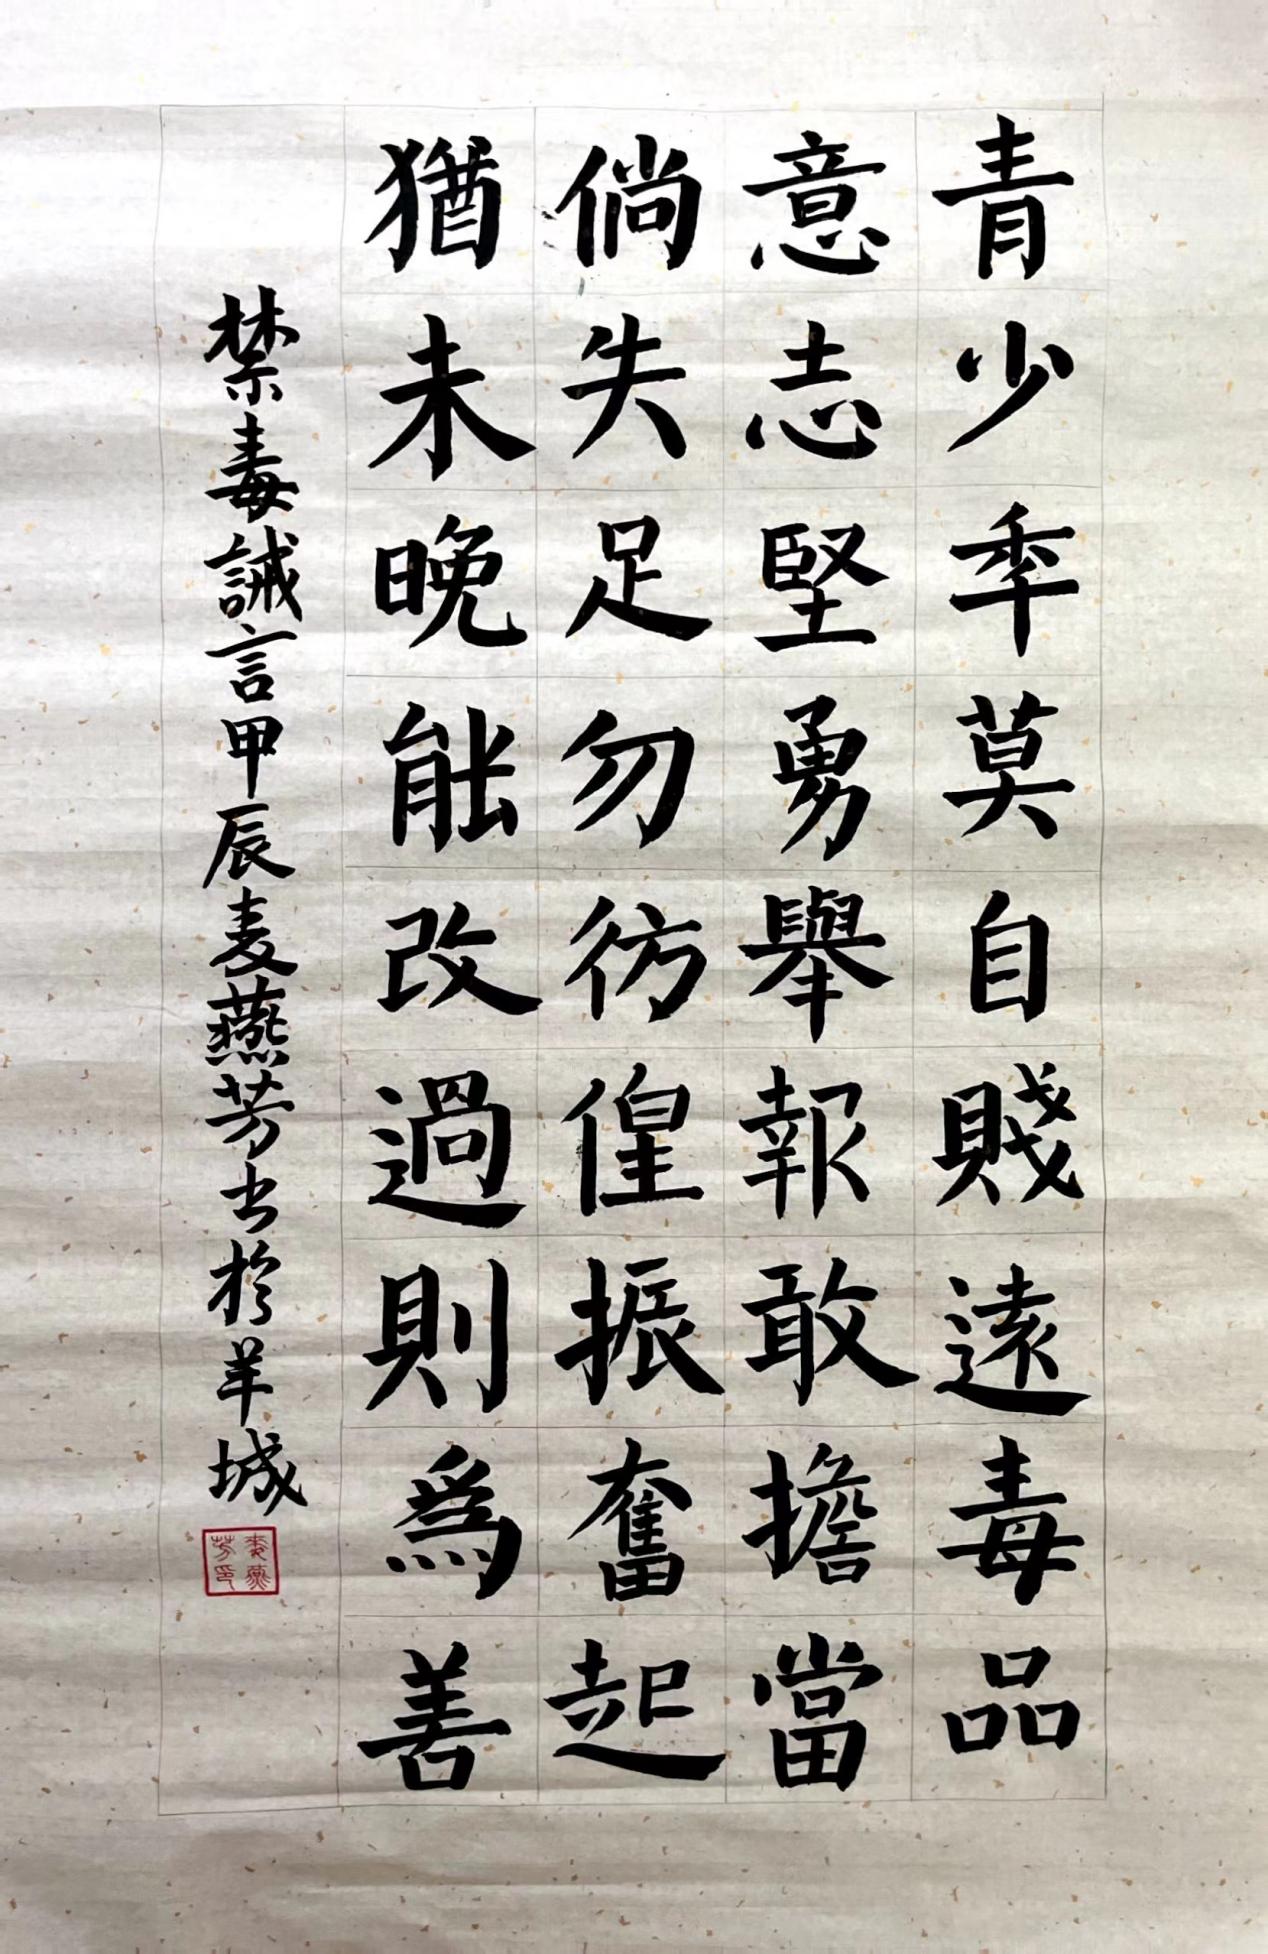 青少年莫自賤遠毒品
意志堅勇舉報敢擔當
倘失足勿彷徨振奮起
猶未晚能改過則為善
禁毒誡言甲辰麦燕芳书於羊城
麦燕芳印